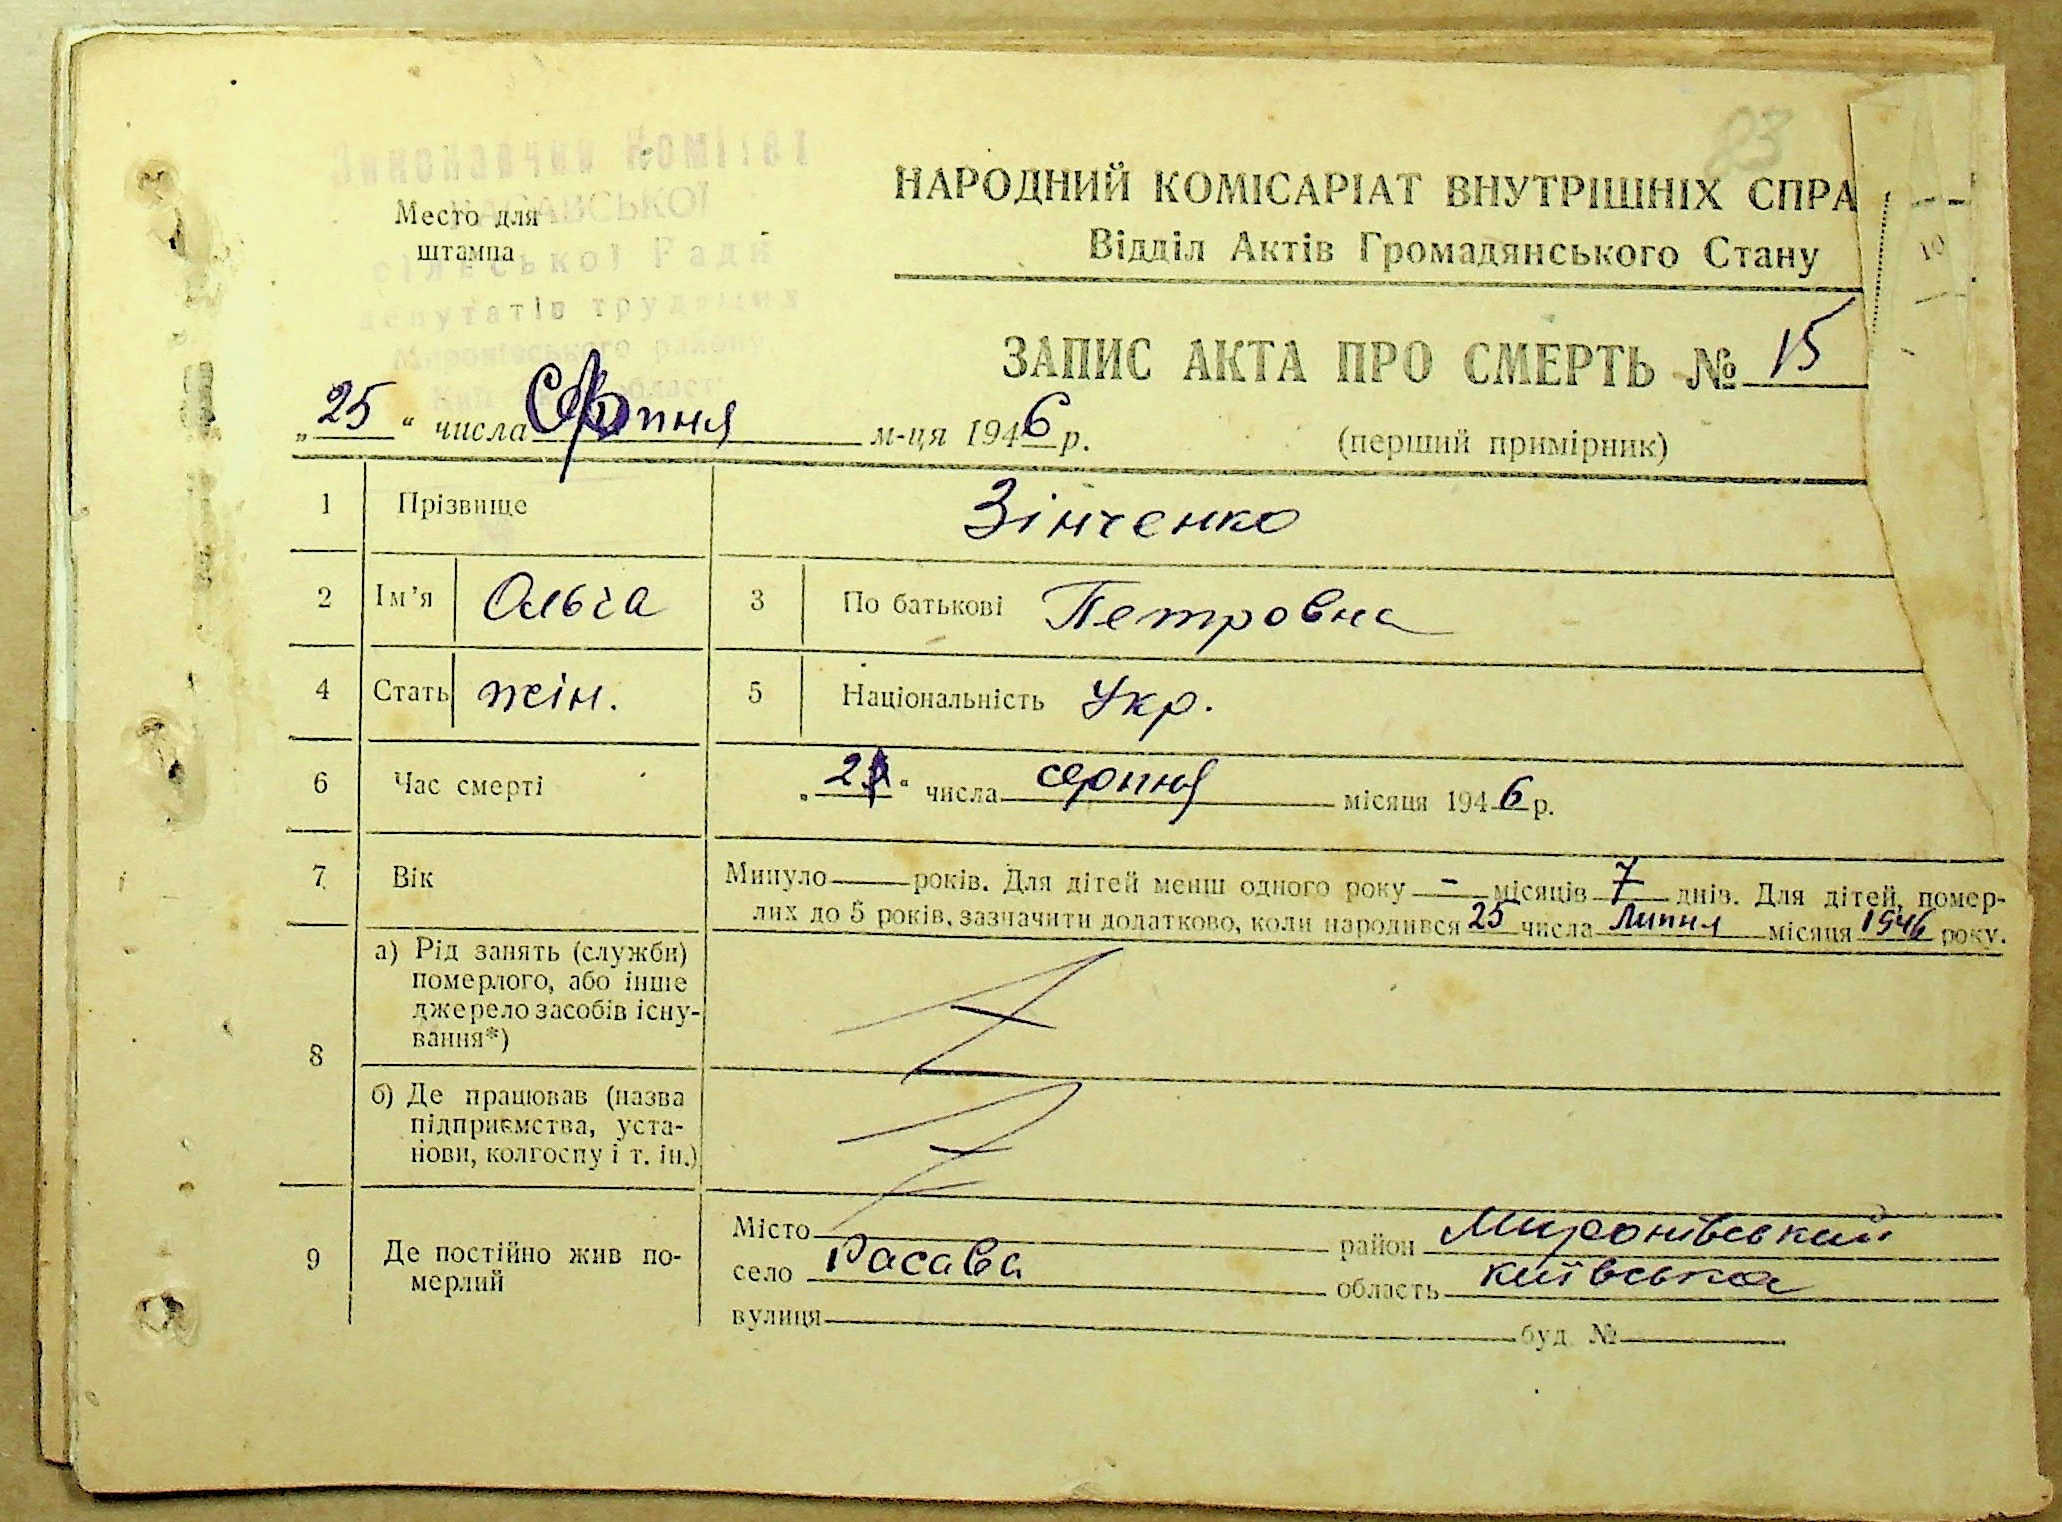 83
Виконавчий Комітет
РАСАВСЬКОЇ
сільської Ради
депутатів трудящих
Миронівського району
області
Место для
штампа
НАРОДНИЙ КОМІСАРІАТ ВНУТРІШНІХ СПРА
Відділ Актів Громадянського Стану
10
ЗАПИС АКТА ПРО СМЕРТЬ № 15
„25“ числа Серпня м-ця 1946 р.
(перший примірник)
1 Прізвище Зінченко
2 Ім'я Ольга 3 По батькові Петровна
4 Стать жін. 5 Національність Укр.
6 Час смерті числа серпня місяця 1946 р.
7 Вік Минуло — років. Для дітей менш одного року - місяців 7 днів. Для дітей, помер-
лих до 5 років, зазначити додатково, коли народився 25 числа Липня місяця 1946 року.
8
а) Рід занять (служби)
померлого, або інше
джерело засобів існу-
вання*)
б) Де працював (назва
підприємства, уста-
нови, колгоспу і т. ін.)
9 Де постійно жив по-
мерлий
Місто район Миронівський
село Расава область київська
вулиця буд. №